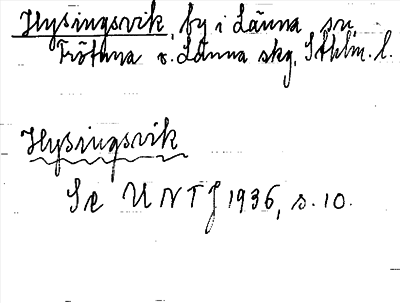 Hysingsvik, by i Länna sn.
Frötuna o. Länna skg, Sthlm. l.
Hysingsvik
Se UNTJ 1936, s. 10.